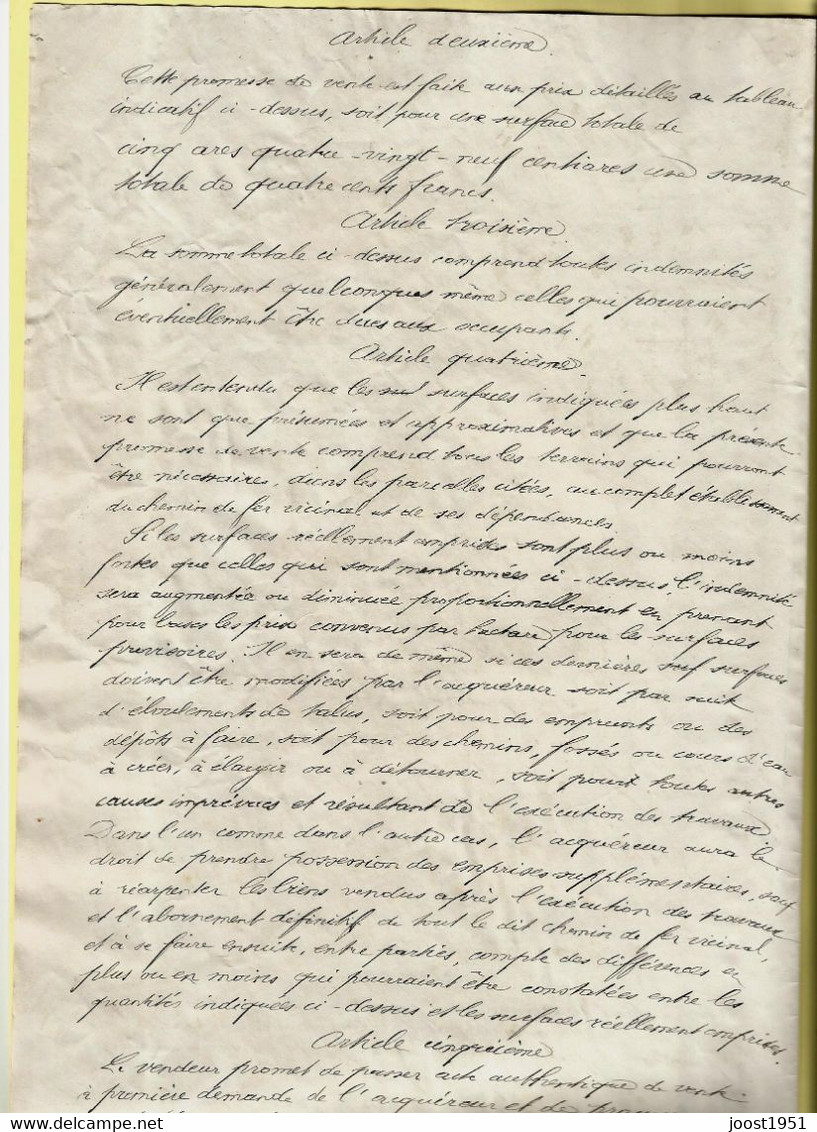 Article deuxième.
Cette promesse de vente est faite aux prix détaillés au tableau
indicatif ci-dessus, soit pour une surface totale de
cinq ares quatre-vingt-neuf centiares une somme
totale de quatre cents francs.
Article troisième.
La somme totale ci-dessus comprend toutes indemnités
généralement quelconques même celles qui pourraient
éventuellement être dues aux occupants.
Article quatrième.
Il est entendu que les surfaces indiquées plus haut
ne sont que présumées et approximatives et que la présente
promesse de vente comprend tous les terrains qui pourront
être nécessaires, dans les parcelles citées, au complet établissement
du chemin de fer vicinal et de ses dépendances.
Si les surfaces réellement emprises sont plus ou moins
fortes que celles qui sont mentionnées ci-dessus, l'indemnité
sera augmentée ou diminuée proportionnellement en prenant
pour bases les prix convenus par hectare pour les surfaces
provisoires. Il en sera de même si ces dernières surfaces
doivent être modifiées par l'acquéreur soit par suit
d'éboulements de talus, soit pour des emprunts ou des
dépôts à faire, soit pour des chemins, fossés ou cours d'eau
à créer, à élargir ou à détourner, soit pour toutes autres
causes imprévues et résultant de l'exécution des travaux
Dans l'un comme dans l'autre cas, l'acquéreur aura le
droit de prendre possession des emprises supplémentaires, sauf
à réarpenter les biens vendus après l'exécution des travaux
et l'abornement définitif de tout le dit chemin de fer vicinal,
et à se faire ensuite, entre parties, compte des différences en
plus ou en moins qui pourraient être constatées entre les
quantités indiquées ci-dessus et les surfaces réellement emprises.
Article cinquième
Le vendeur promet de passer acte authentique de vente
à première demande de l'acquéreur et de
joost1951